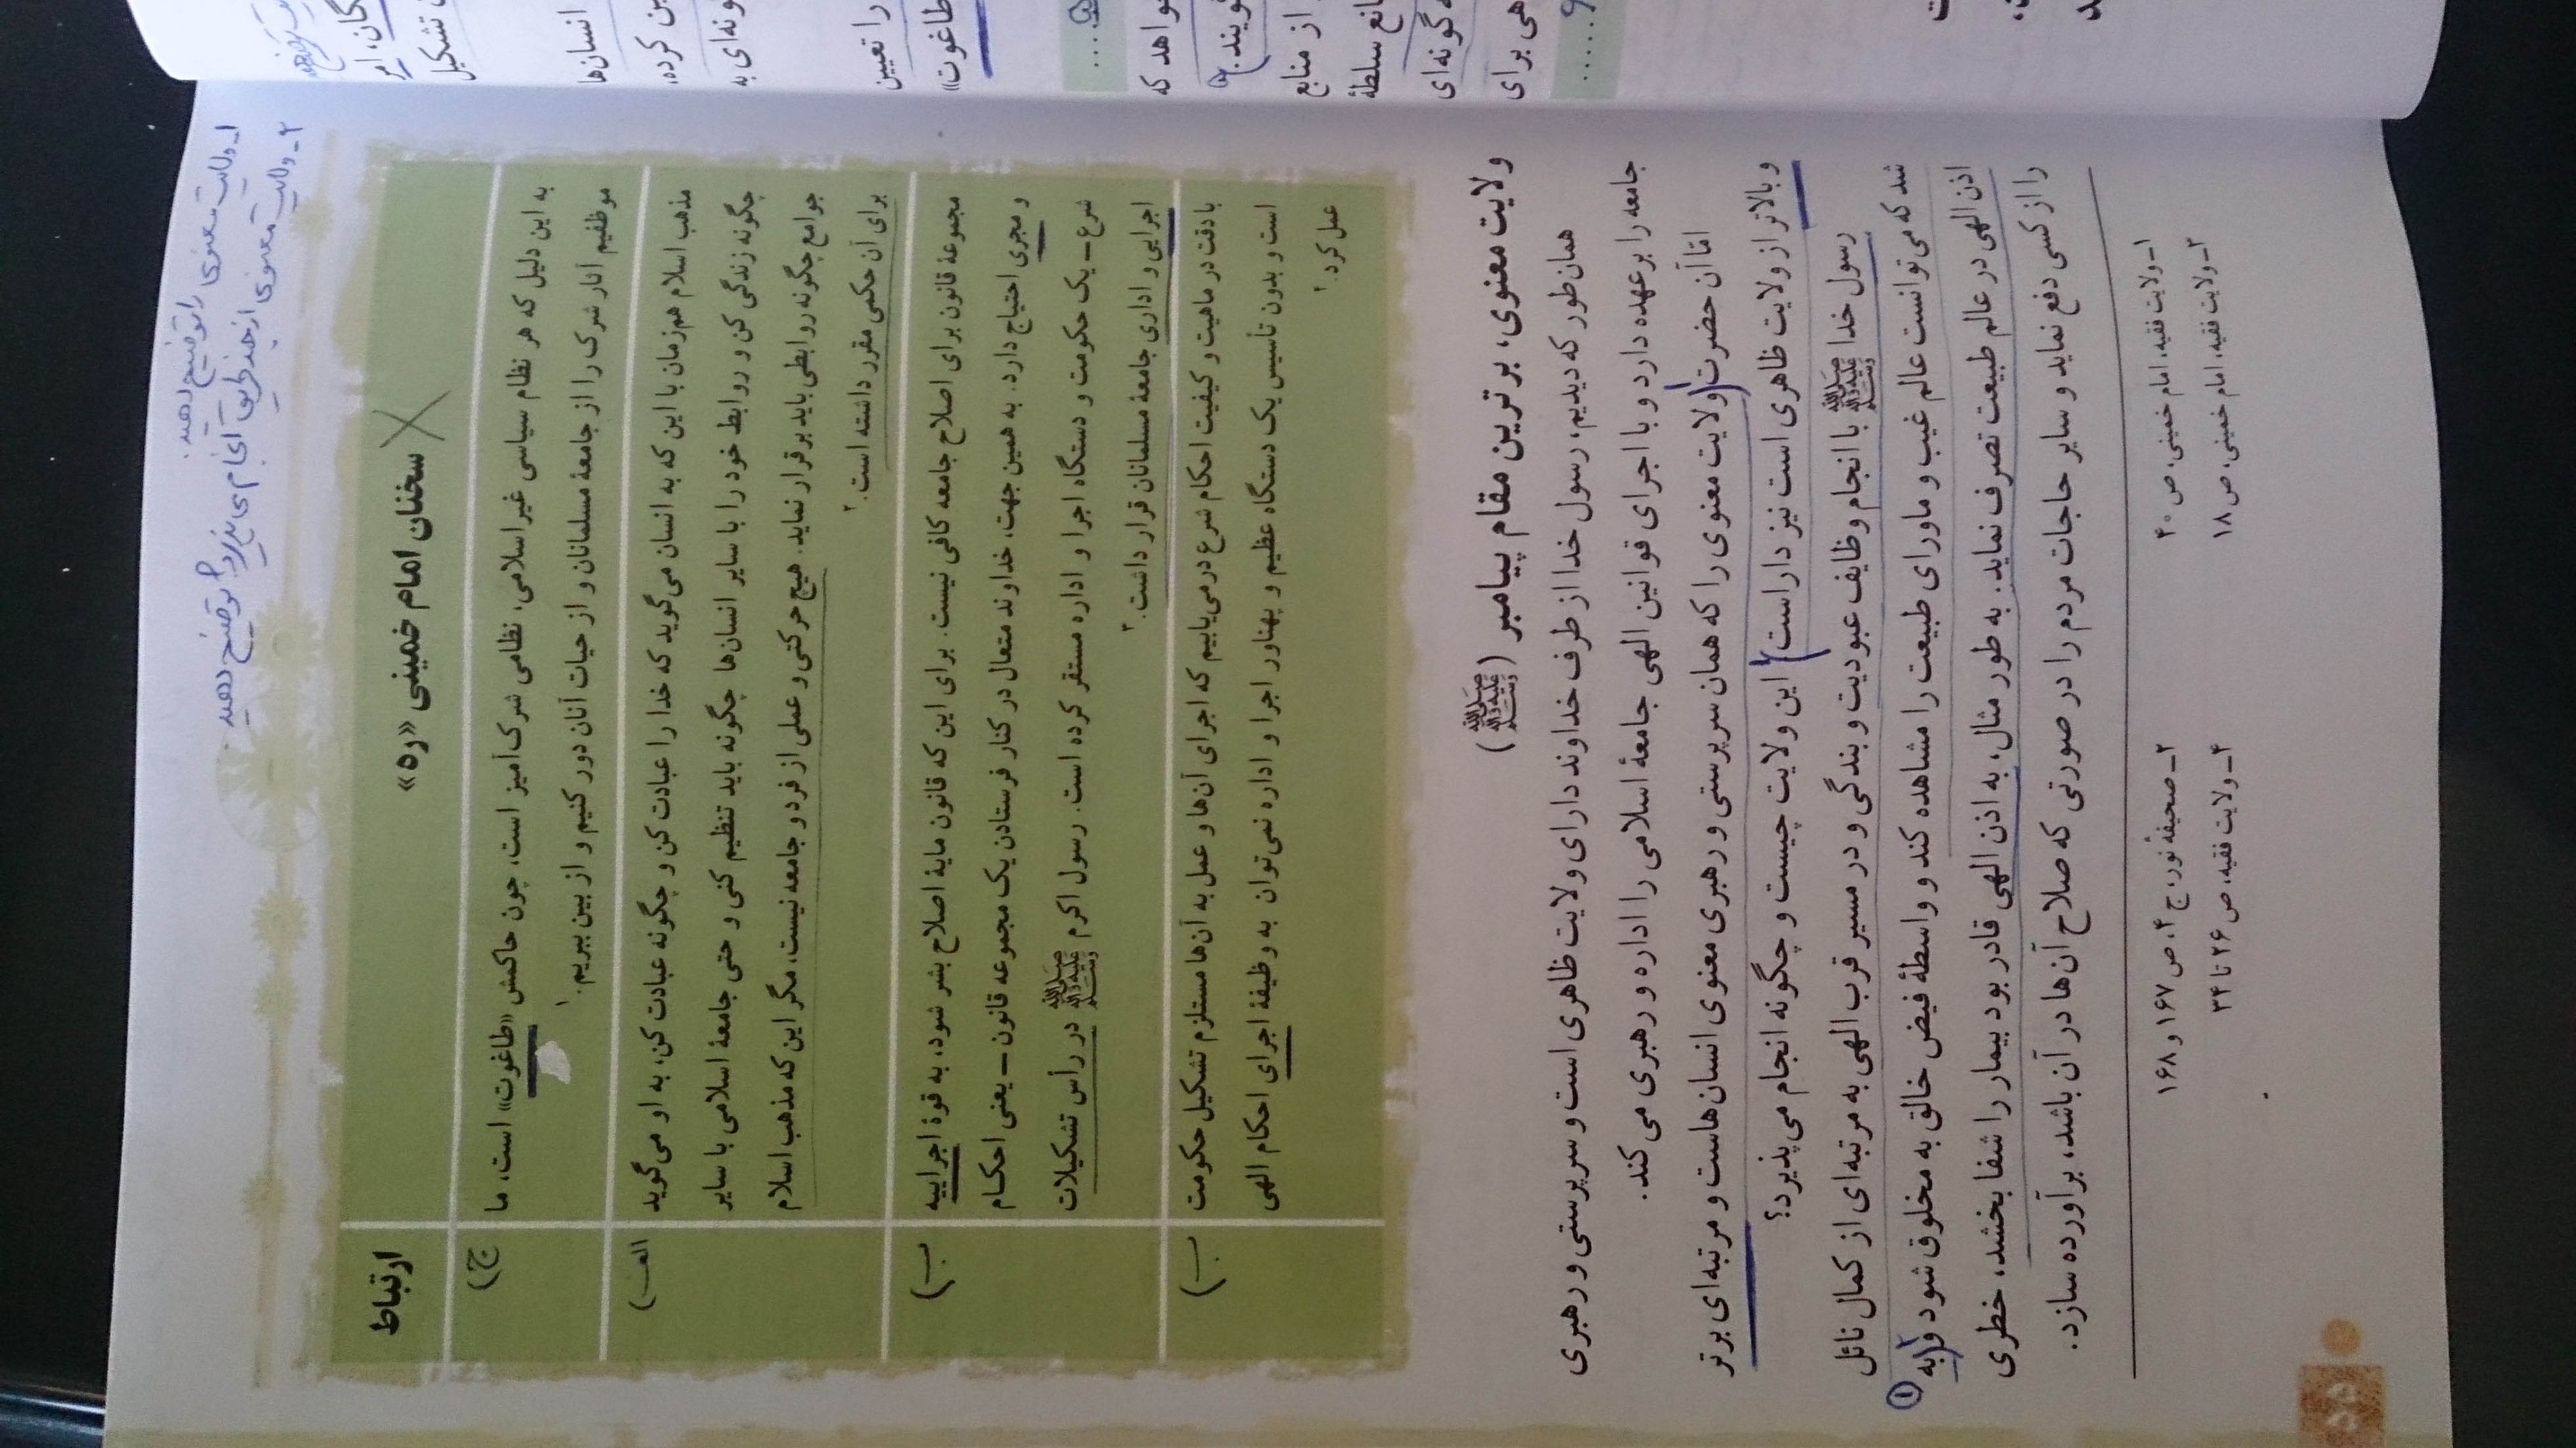 ۱ـ ولایت معنوی را توضیح دهید.
۲ـ ولایت معنوی از چه طریق انجام می‌پذیرد؟ توضیح دهید.
سخنان امام خمینی «ره»
ارتباط
به این دلیل که هر نظام سیاسی غیراسلامی، نظامی شرک‌آمیز است، چون حاکمش «طاغوت» است، ما
موظفیم آثار شرک را از جامعهٔ مسلمانان و از حیات آنان دور کنیم و از بین ببریم.۱
ج)
مذهب اسلام هم‌زمان با این که به انسان می‌گوید که خدا را عبادت کن و چگونه عبادت کن، به او می‌گوید
چگونه زندگی کن و روابط خود را با سایر انسان‌ها چگونه باید تنظیم کنی و حتی جامعهٔ اسلامی با سایر
جوامع چگونه روابطی باید برقرار نماید. هیچ حرکتی و عملی از فرد و جامعه نیست، مگر این که مذهب اسلام
برای آن حکمی مقرر داشته است.۲
الف)
مجموعهٔ قانون برای اصلاح جامعه کافی نیست. برای این که قانون مایهٔ اصلاح بشر شود، به قوهٔ اجراییه
و مجری احتیاج دارد. به همین جهت، خداوند متعال در کنار فرستادن یک مجموعه قانون ـ یعنی احکام
شرع ـ یک حکومت و دستگاه اجرا و اداره مستقر کرده است. رسول اکرم ﷺ در رأس تشکیلات
اجرایی و اداری جامعهٔ مسلمانان قرار داشت.۳
ب)
با دقت در ماهیت و کیفیت احکام شرع درمی‌یابیم که اجرای آن‌ها و عمل به آن‌ها مستلزم تشکیل حکومت
است و بدون تأسیس یک دستگاه عظیم و پهناور اجرا و اداره نمی‌توان به وظیفهٔ اجرای احکام الهی
عمل کرد.۴
ب)
ولایت معنوی، برترین مقام پیامبر (ﷺ)
همان‌طور که دیدیم، رسول خدا از طرف خداوند دارای ولایت ظاهری است و سرپرستی و رهبری
جامعه را برعهده دارد و با اجرای قوانین الهی جامعهٔ اسلامی را اداره و رهبری می‌کند.
امّا آن حضرت (ولایت معنوی را که همان سرپرستی و رهبری معنوی انسان‌هاست و مرتبه‌ای برتر
و بالاتر از ولایت ظاهری است نیز داراست) این ولایت چیست و چگونه انجام می‌پذیرد؟
رسول خدا ﷺ با انجام وظایف عبودیت و بندگی و در مسیر قرب الهی به مرتبه‌ای از کمال نائل
شد که می‌توانست عالم غیب و ماورای طبیعت را مشاهده کند و واسطهٔ فیض خالق به مخلوق شود و (به
۱
اذن الهی در عالم طبیعت تصرف نماید. به طور مثال، به اذن الهی قادر بود بیمار را شفا بخشد، خطری
را از کسی دفع نماید و سایر حاجات مردم را در صورتی که صلاح آن‌ها در آن باشد، برآورده سازد.
۱ـ ولایت فقیه، امام خمینی، ص ۴۰
۲ـ صحیفهٔ نور، ج ۴، ص ۱۶۷ و ۱۶۸
۳ـ ولایت فقیه، امام خمینی، ص ۱۸
۴ـ ولایت فقیه، ص ۲۶ تا ۳۴
گان، امر
تشکیل
انسان‌ها
ین کرده،
ونه‌ای به
را تعیین
طاغوت»
واهد که
ویند.)
از منابع
انع سلطهٔ
ه گونه‌ای
هی برای